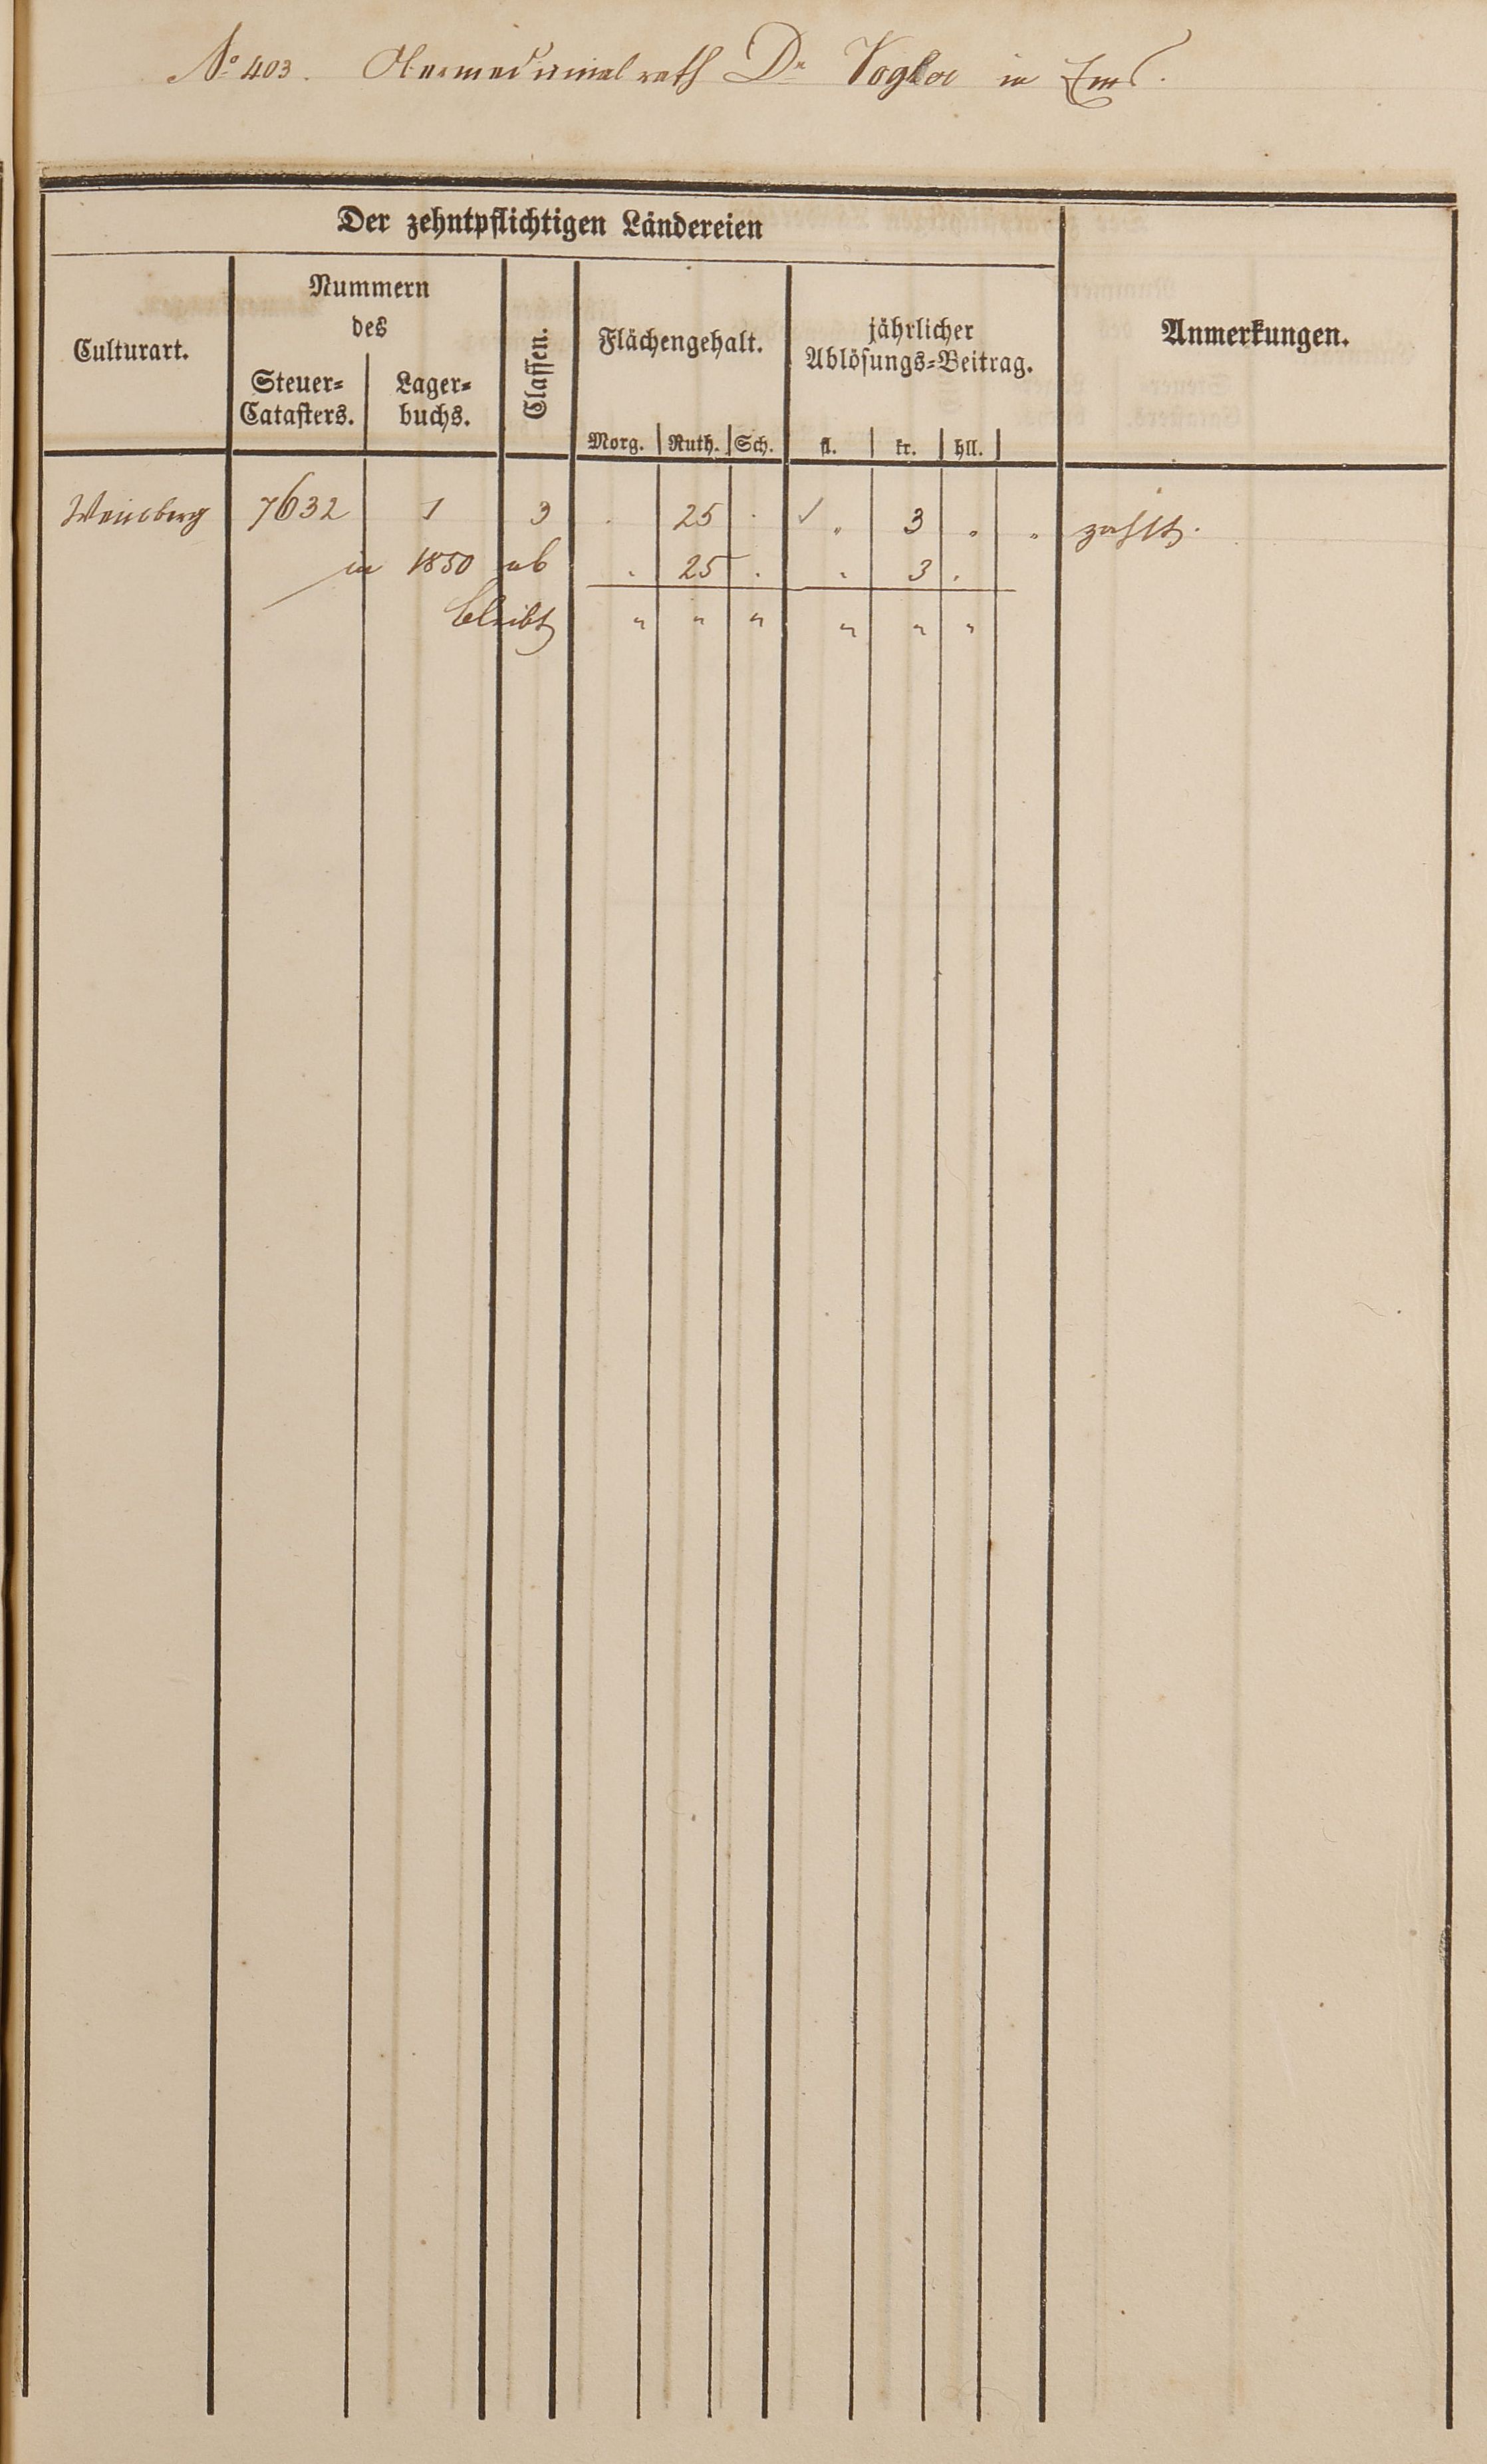 No 403. Obermedicinalrath Dr Vogler in Ems.
Der zehntpflichtigen Ländereien
Culturart.
Nummern
des
Steuer-
Catasters.
Lager-
buchs.
Classen.
Flächengehalt.
Morg. Ruth. Sch.
jährlicher
Ablösungs-Beitrag.
fl. kr. hll.
Anmerkungen.
Weinberg 7632 1 3 . 25 . ✓ " 3 " " zahlt.
in 1850 ab . 25 . " 3 .
bleibt " " " " " "